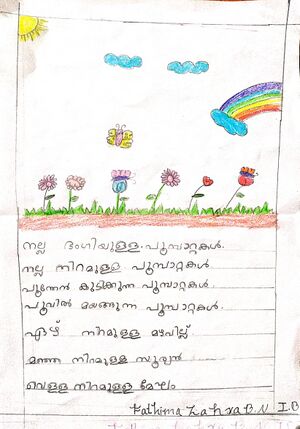 നല്ല ഭംഗിയുള്ള പൂമ്പാറ്റകൾ.
നല്ല നിറമുള്ള പൂമ്പാറ്റകൾ
പൂന്തേൻ കുടിക്കുന്ന പൂമ്പാറ്റകൾ.
പൂവിൽ മയങ്ങുന്ന പൂമ്പാറ്റകൾ.
ഏഴ് നിറമുള്ള മഴവില്ല്
മഞ്ഞ നിറമുള്ള സൂര്യൻ
വെള്ള നിറമുള്ള മേഘം
Fathima Zahra B.N I.B